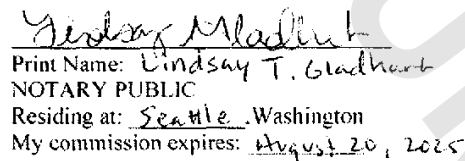 Lindsay Gladhart
Print Name: Lindsay T. Gladhart
NOTARY PUBLIC
Residing at: Seattle, Washington
My commission expires: August 20, 2025